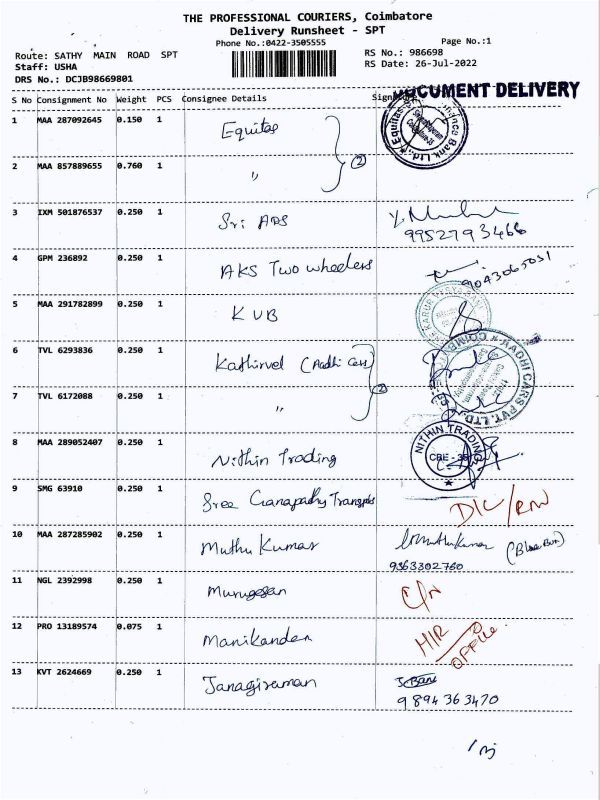 THE PROFESSIONAL COURIERS, Coimbatore
Delivery Runsheet - SPT
Phone No.:0422-3505555
Page No.:1
Route: SATHY MAIN ROAD SPT
RS No.: 986698
Staff: USHA
RS Date: 26-Jul-2022
DRS No.: DCJB98669801
DOCUMENT DELIVERY
S No Consignment No Weight PCS Consignee Details
1 MAA 287092645 0.150 1 Equitas
2 MAA 857889655 0.760 1 "
2
3 IXM 501876537 0.250 1 Sri ADS
9952793466
4 GPM 236892 0.250 1 AKS Two wheelers
9043065051
5 MAA 291782899 0.250 1 KVB
6 TVL 6293836 0.250 1 Kathirvel (Aadhi Cars)
7 TVL 6172088 0.250 1 "
2
AADHI CARS PVT. LTD.
8 MAA 289052407 0.250 1 Nithin Trading
NITHIN TRADING
CBE - 35
9 SMG 63910 0.250 1 Sree Ganapathy Transpts
DIC/RNW
10 MAA 287285902 0.250 1 Muthu Kumar
9363302760
11 NGL 2392998 0.250 1 Murugesan
C/N
12 PRO 13189574 0.075 1 Manikandan
HIR TO OFFICE
13 KVT 2624669 0.250 1 Janagiraman
9894363470